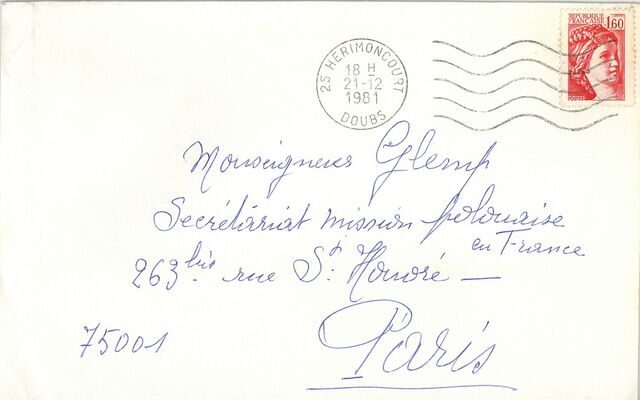 RÉPUBLIQUE
FRANÇAISE
1,60
POSTES
25 HERIMONCOURT
18 H
21-12
1981
DOUBS
Monseigneur Glemp
Secrétariat mission polonaise
en France
263 bis rue St. Honoré —
75001
Paris